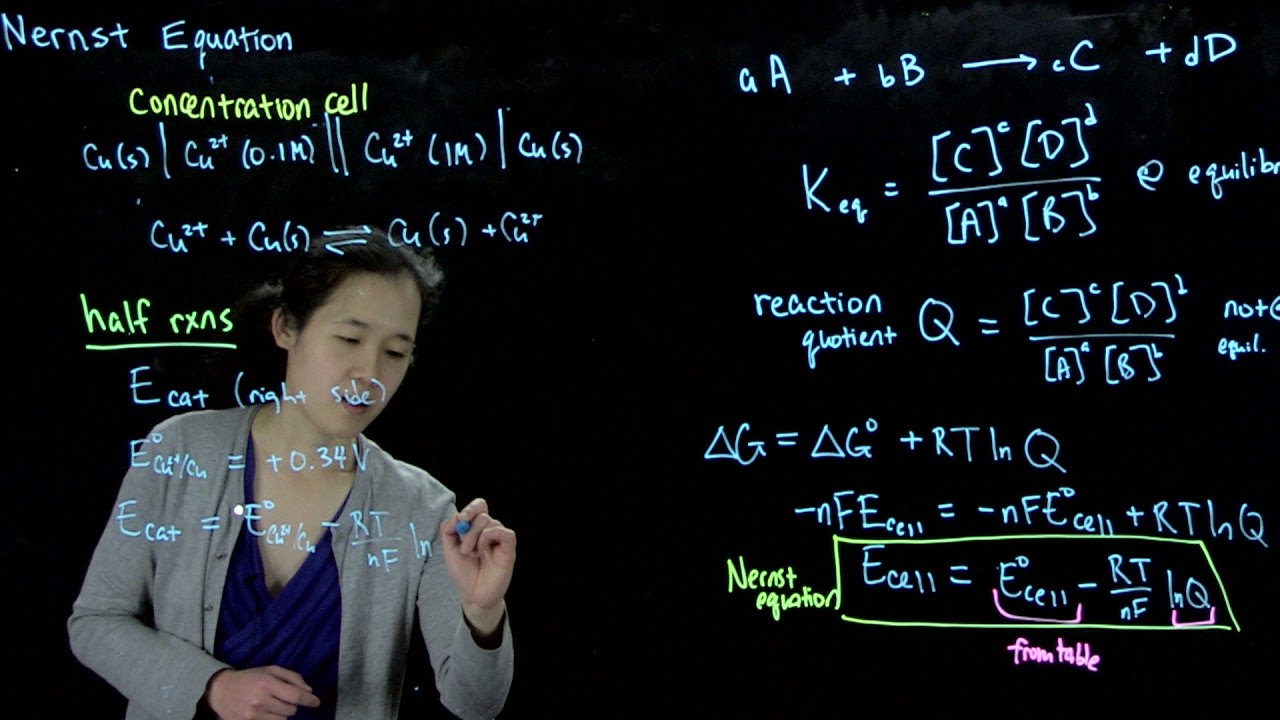 Nernst Equation
Concentration cell
Cu(s) | Cu²⁺ (0.1M) || Cu²⁺ (1M) | Cu(s)
Cu²⁺ + Cu(s) ⇌ Cu(s) + Cu²⁺
half rxns
E_cat (right side)
E⁰_Cu²⁺/Cu = +0.34V
E_cat = E⁰_Cu²⁺/Cu − RT/nF ln
aA + bB → cC + dD
K_eq = [C]ᶜ[D]ᵈ / [A]ᵃ[B]ᵇ @ equilibr
reaction quotient Q = [C]ᶜ[D]ᵈ / [A]ᵃ[B]ᵇ not @ equil.
ΔG = ΔG⁰ + RT ln Q
−nFE_cell = −nFE⁰_cell + RT ln Q
Nernst equation E_cell = E⁰_cell − RT/nF ln Q
from table